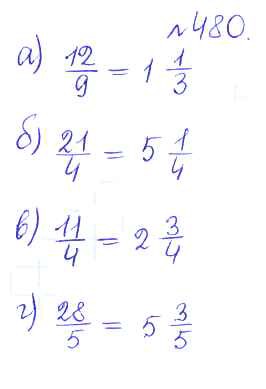 №480.
а) 12/9 = 1 1/3
б) 21/4 = 5 1/4
в) 11/4 = 2 3/4
г) 28/5 = 5 3/5